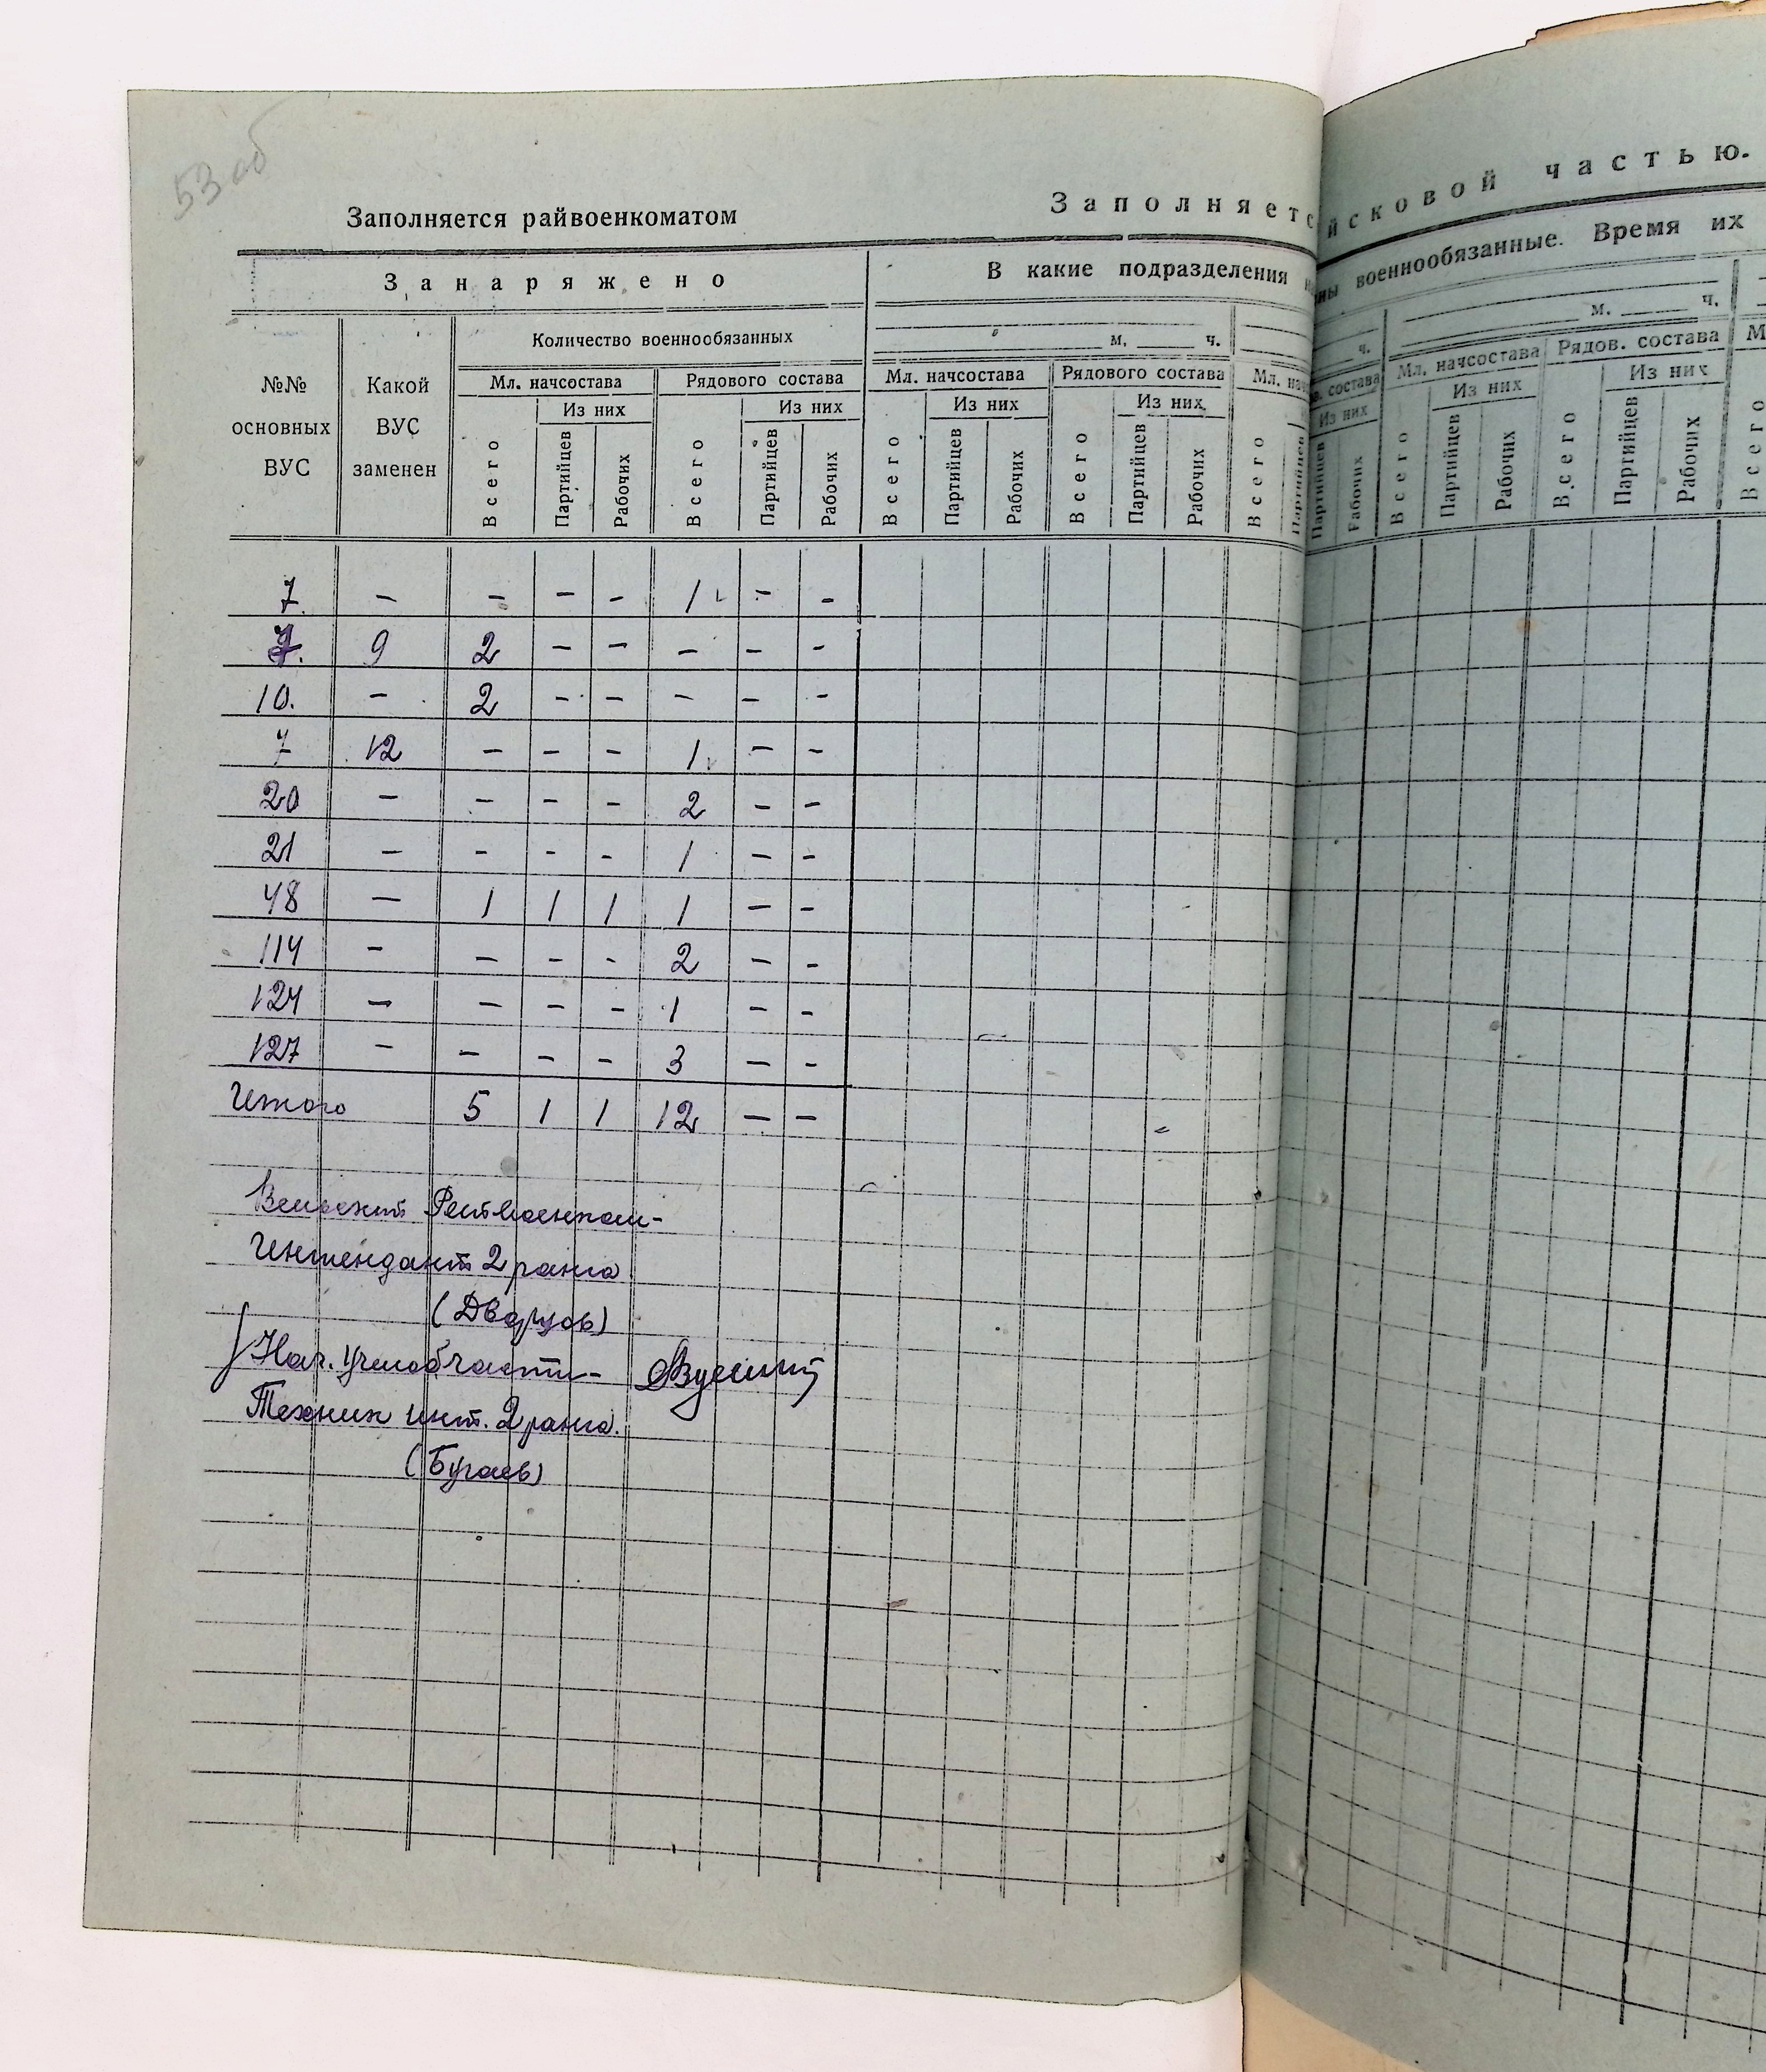 53 об
Заполняется райвоенкоматом
Заполняетс йсковой частью.
Занаряжено
В какие подразделения ны военнообязанные. Время их
Количество военнообязанных
м. ч.
м. ч.
ч.
№№ основных ВУС
Какой ВУС заменен
Мл. начсостава
Рядового состава
Мл. начсостава
Рядового состава
Мл. нач
состава
Мл. начсостава
Рядов. состава
М
Из них
Из них
Из них
Из них
Из них
Из них
Из них
Всего Партийцев Рабочих Всего Партийцев Рабочих Всего Партийцев Рабочих Всего Партийцев Рабочих Всего Партийцев Партийцев Рабочих Всего Партийцев Рабочих Всего Партийцев Рабочих Всего
7 – – – – 1 – –
7. 9 2 – – – – –
10. – 2 – – – – –
7 12 – – – 1 – –
20 – – – – 2 – –
21 – – – – 1 – –
48 – 1 1 1 1 – –
114 – – – – 2 – –
124 – – – – 1 – –
127 – – – – 3 – –
Итого 5 1 1 12 – –
Вельский Райвоенком-
Интендант 2 ранга
(Дворцов)
Нач. Учетной части-
Техник инт. 2 ранга.
(Бугаев)